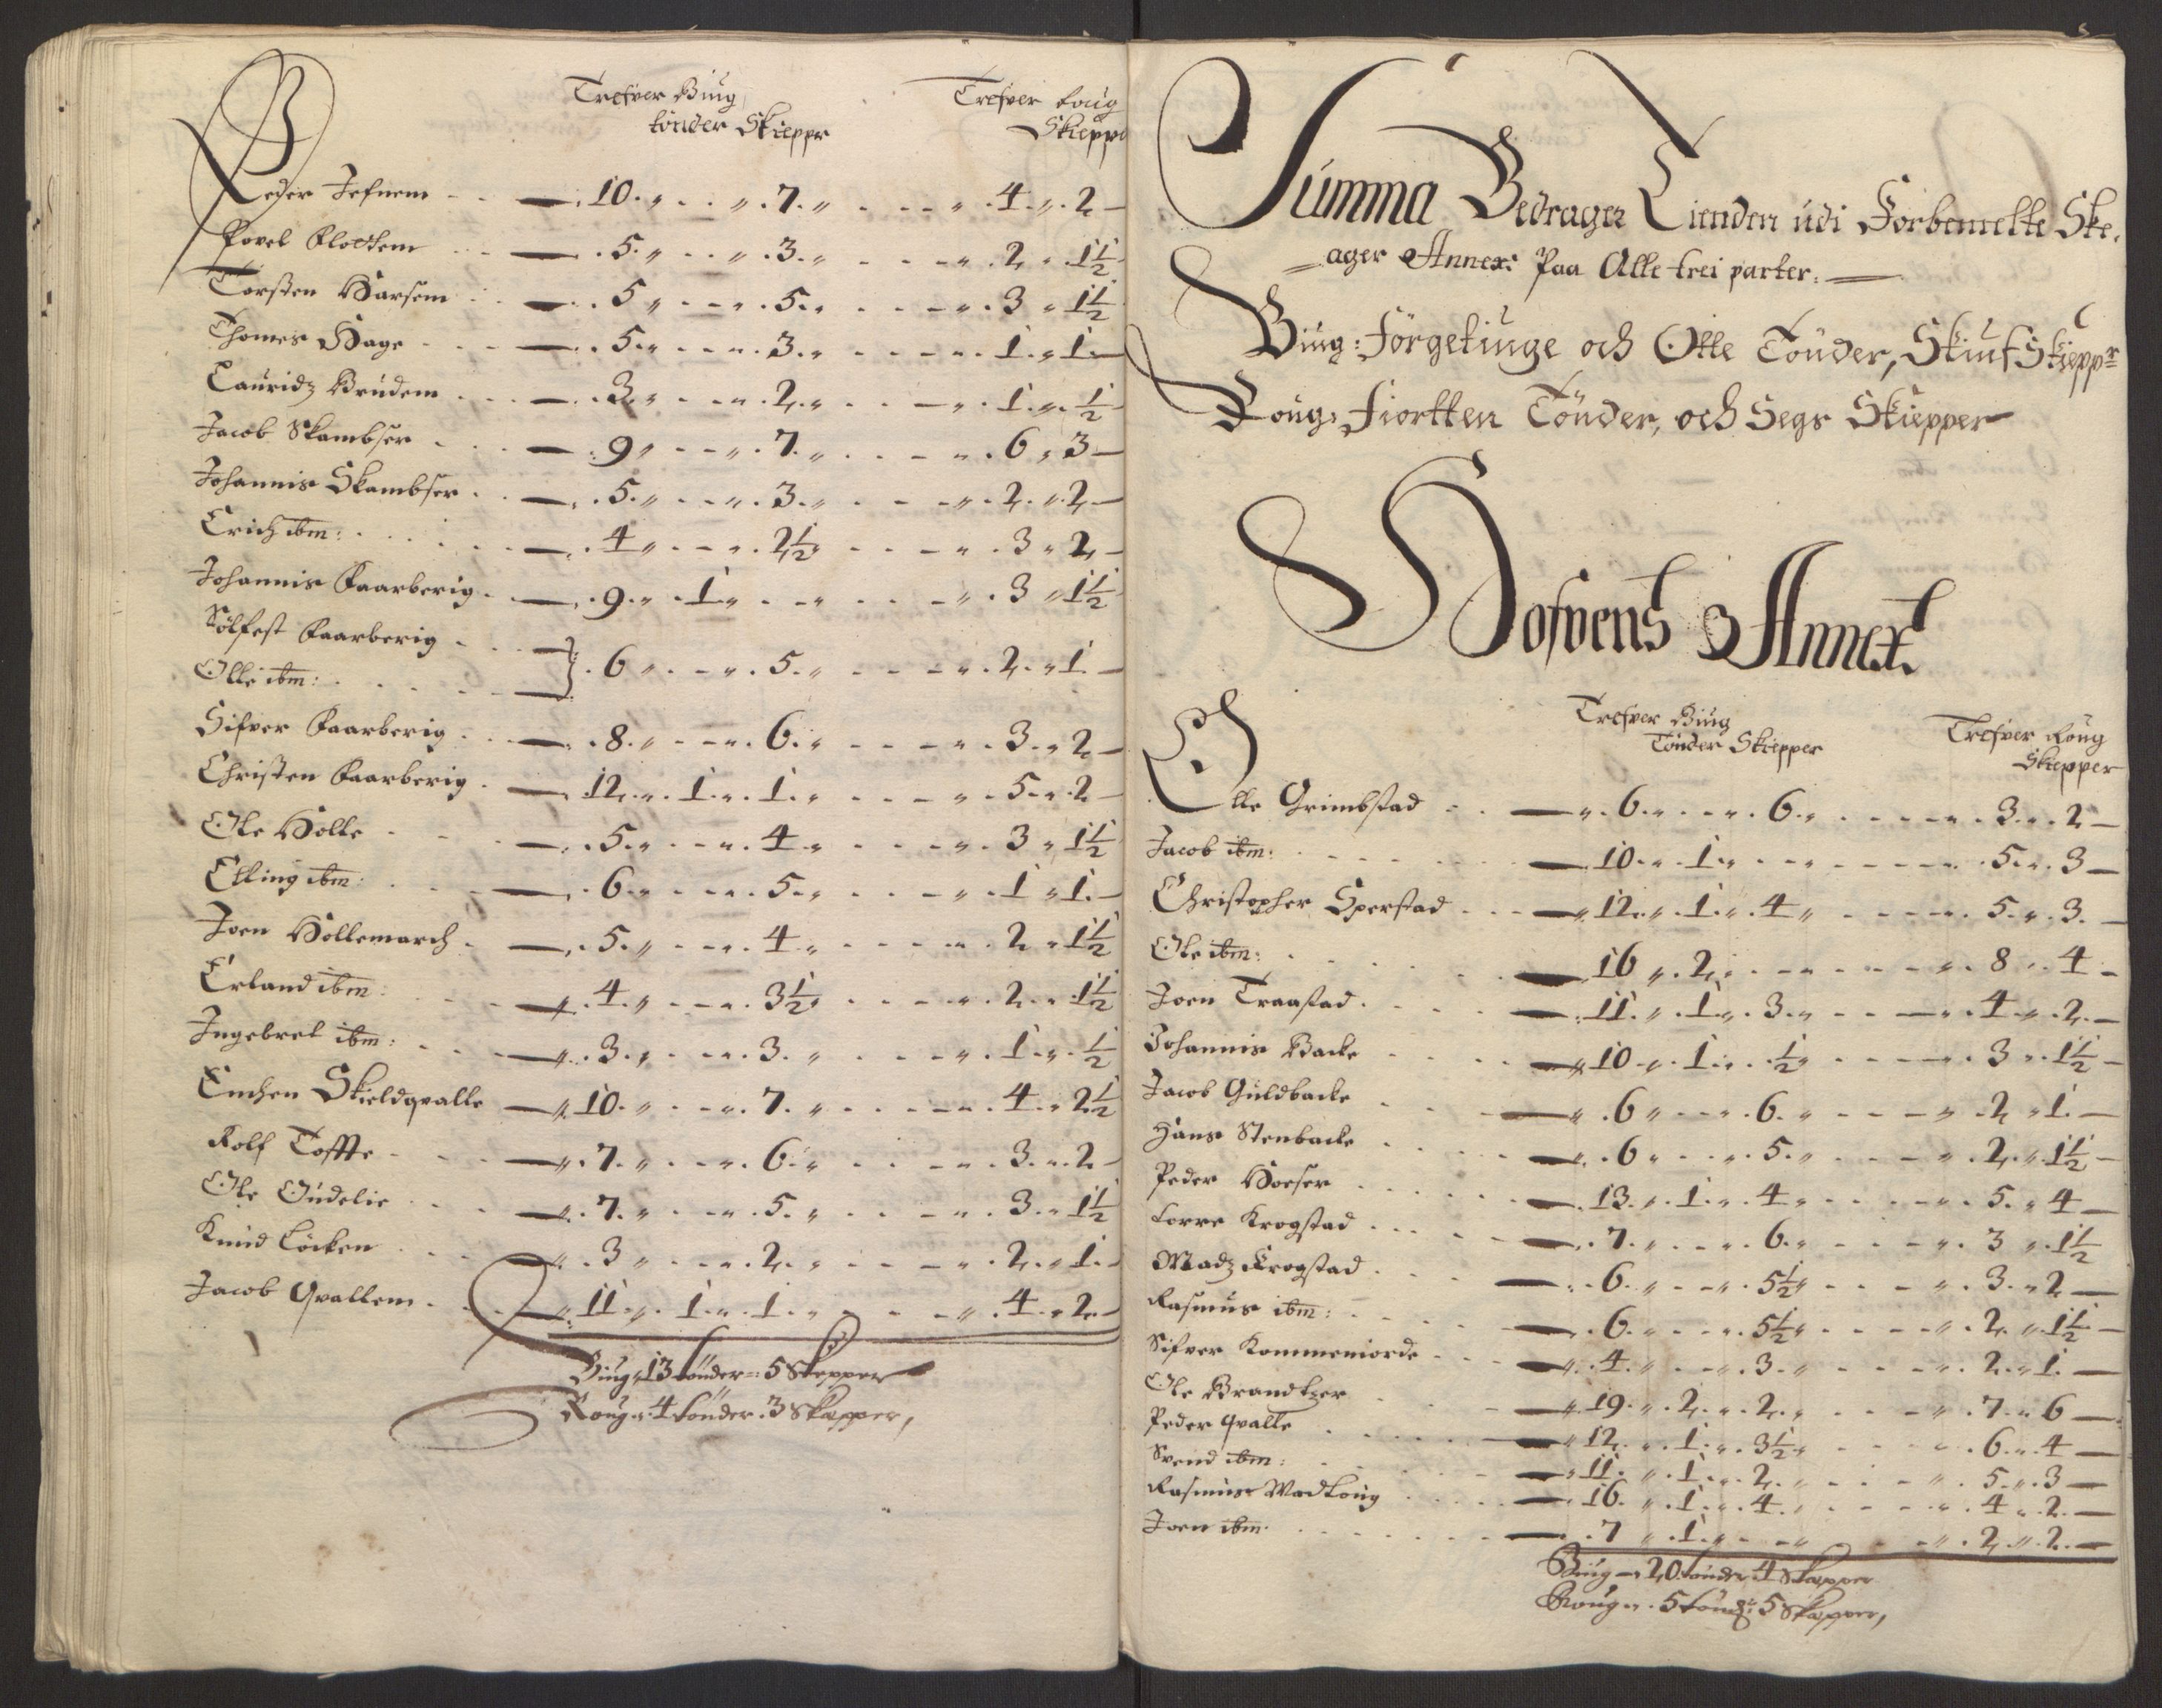 Trefver Biug Trefver Roug
tönder Skiepper Skiepper
Peder Jefnem 10 7 4 2
Povel Klockem 5 3 2 1½
Torsten Harsem 5 5 3 1½
Thomes Hage 5 3 1 1
Lauridz Brudem 3 2 1 ½
Jacob Skambser 9 7 6 3
Johannis Skambser 5 3 2 2
Erich ibm: 4 2½ 3 2
Johannis Kaarberig 9 1 3 1½
Sölfest Kaarberig
Olle ibm: } 6 5 2 1
Sifver Kaarberig 8 6 3 2
Christen Kaarberig 12 1 1 5 2
Ole Holle 5 4 3 1½
Elling ibm: 6 5 1 1
Joen Hollemarch 5 4 2 1½
Erland ibm: 4 3½ 2 1½
Ingebret ibm: 3 3 1 ½
Enchen Skieldqvalle 10 7 4 2½
Rolf Toffte 7 6 3 2
Ole Oudelie 7 5 3 1½
Knud Löcken 3 2 2 1
Jacob Qvallem 11 1 1 4 2
Biug 13 tönder 5 Skepper
Roug 4 tönder 3 Skæpper,
Summa Bedrager Tienden udi Forbemelte Ske,
ager Annex: Paa Alle trei parter:
Biug: Förgetiuge och Otte Tönder, Skiuf Skiepp
Roug: Fiortten Tönder, och Segs Skiepper
Hofvens Annex.
Trefver Biug Trefver Roug
Tönder Skiepper Skiepper
Olle Grimbstad 6 6 3 2
Jacob ibm: 10 1 5 3
Christopher Sperstad 12 1 4 5 3
Ole ibm: 16 2 8 4
Joen Traastad 11 1 3 4 2
Johannis Backe 10 1 ½ 3 1½
Jacob Guldbacke 6 6 2 1
Hans Stenbacke 6 5 2 1½
Peder Hoeser 13 1 4 5 4
Torre Krogstad 7 6 3 1½
Madz Krogstad 6 5½ 3 2
Rasmus ibm: 6 5½ 2 1½
Sifver Kommeniorde 4 3 2 1
Ole Brandtzer 19 2 2 7 6
Peder Qvalle 12 1 3½ 6 4
Svend ibm: 11 1 2 5 3
Rasmus Madtong 16 1 4 4 2
Joen ibm: 7 1 2 2
Biug 20 tönder 4 Skæpper
Roug 5 tönd: 5 Skæpper,